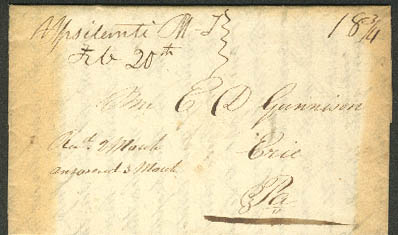 Ypsilanti M-T 18 3/4
Feb 20th
E D Gunnison
Recd. 2 March
answered 3 March
Erie
Pa